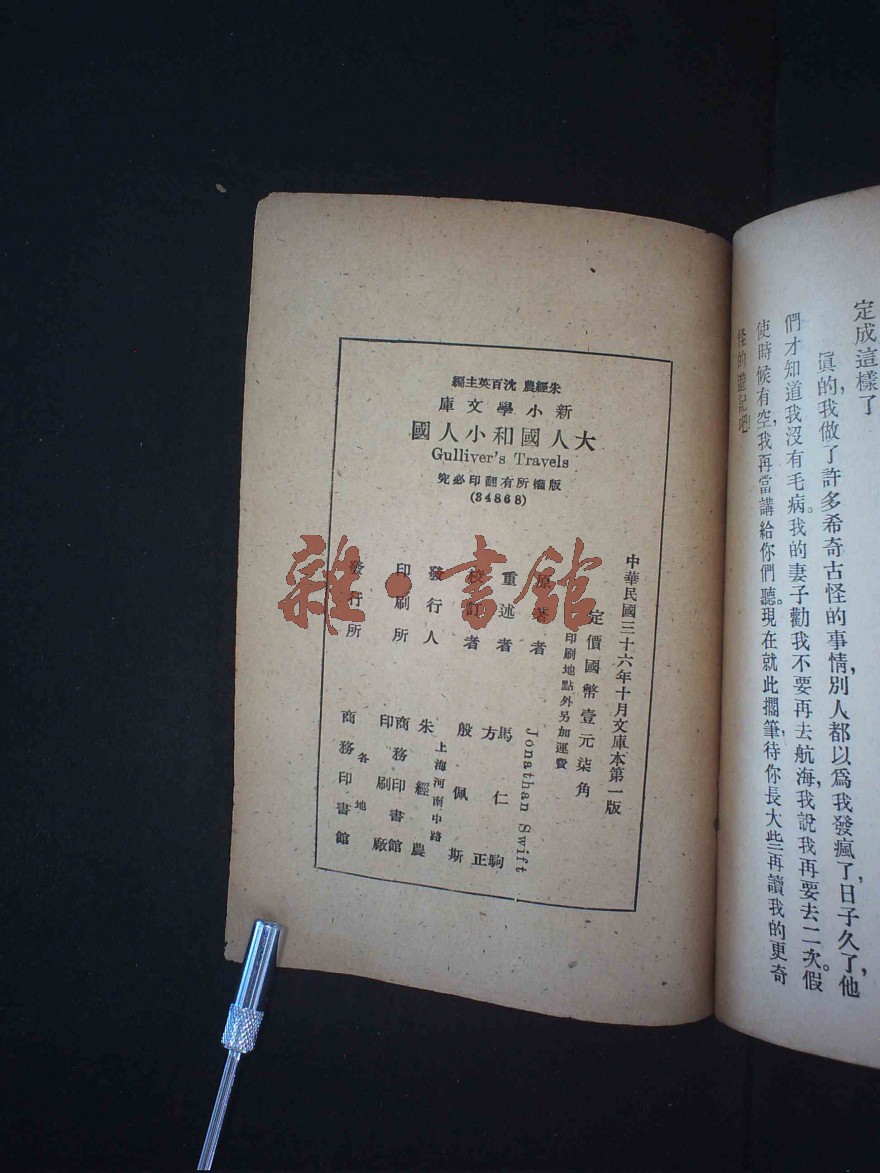 定成這樣了
眞的,我做了許多希奇古怪的事情,別人都以爲我發瘋了,日子久了,他
們才知道我沒有毛病。我的妻子勸我不要再去航海,我說我再要去二次。假
使時候有空,我再當講給你們聽。現在就此擱筆待你長大些再讀我的更奇
怪的遊記吧!
朱經農 沈百英主編
新小學文庫
大人國和小人國
Gulliver's Travels
版權所有翻印必究
(34868)
中華民國三十六年十月文庫本第一版
定價國幣壹元柒角
印刷地點外另加運費
原著者 Jonathan Swift
重述者 馬仁駒 方正
校訂者 殷佩斯
發行人 朱經農
上海河南中路
印刷所 商務印書館印刷廠
發行所 商務印書館
各地
雜·書館